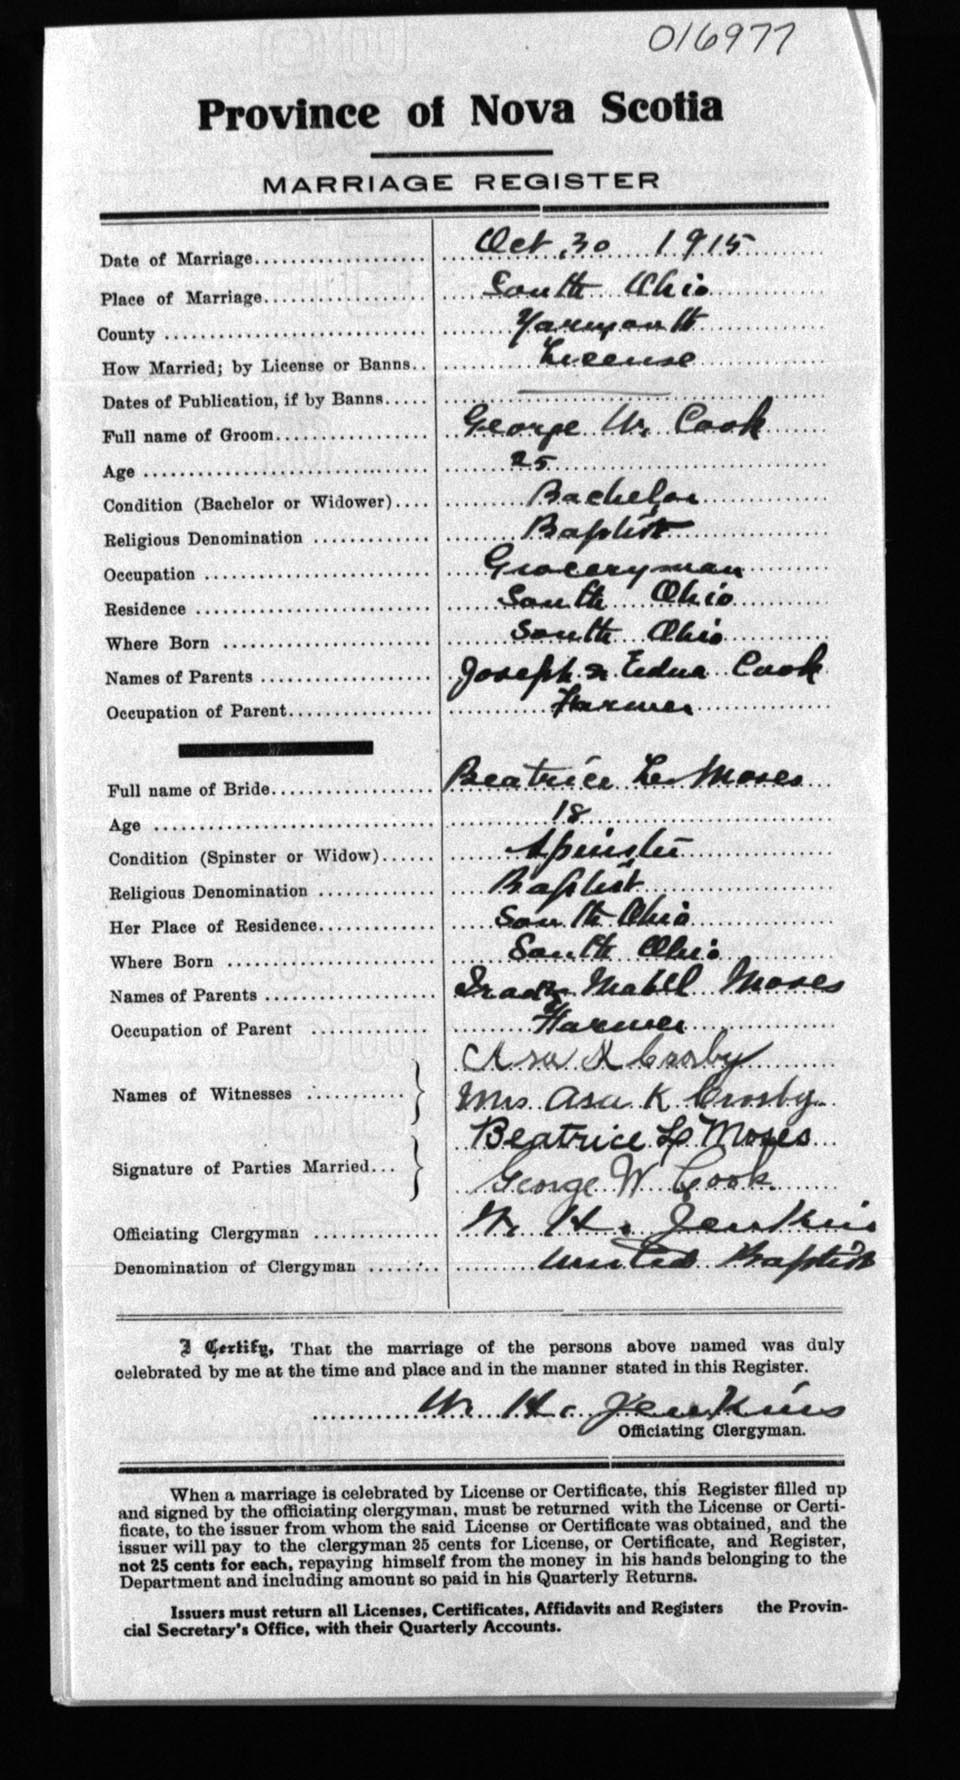 016977
Province of Nova Scotia
MARRIAGE REGISTER
Date of Marriage Oct 30 1915
Place of Marriage South Ohio
County Yarmouth
How Married; by License or Banns License
Dates of Publication, if by Banns
Full name of Groom George W. Cook
Age 25
Condition (Bachelor or Widower) Bachelor
Religious Denomination Baptist
Occupation Groceryman
Residence South Ohio
Where Born South Ohio
Names of Parents Joseph & Edna Cook
Occupation of Parent Farmer
Full name of Bride Beatrice L. Moses
Age 18
Condition (Spinster or Widow) Spinster
Religious Denomination Baptist
Her Place of Residence South Ohio
Where Born South Ohio
Names of Parents Mabel Moses
Occupation of Parent Farmer
Asa K Crosby
Names of Witnesses Mrs Asa K Crosby
Beatrice L Moses
Signature of Parties Married George W Cook
Officiating Clergyman W. H. Jenkins
Denomination of Clergyman United Baptist
I Certify, That the marriage of the persons above named was duly
celebrated by me at the time and place and in the manner stated in this Register.
W. H. Jenkins
Officiating Clergyman.
When a marriage is celebrated by License or Certificate, this Register filled up
and signed by the officiating clergyman, must be returned with the License or Certi-
ficate, to the issuer from whom the said License or Certificate was obtained, and the
issuer will pay to the clergyman 25 cents for License, or Certificate, and Register,
not 25 cents for each, repaying himself from the money in his hands belonging to the
Department and including amount so paid in his Quarterly Returns.
Issuers must return all Licenses, Certificates, Affidavits and Registers the Provin-
cial Secretary's Office, with their Quarterly Accounts.